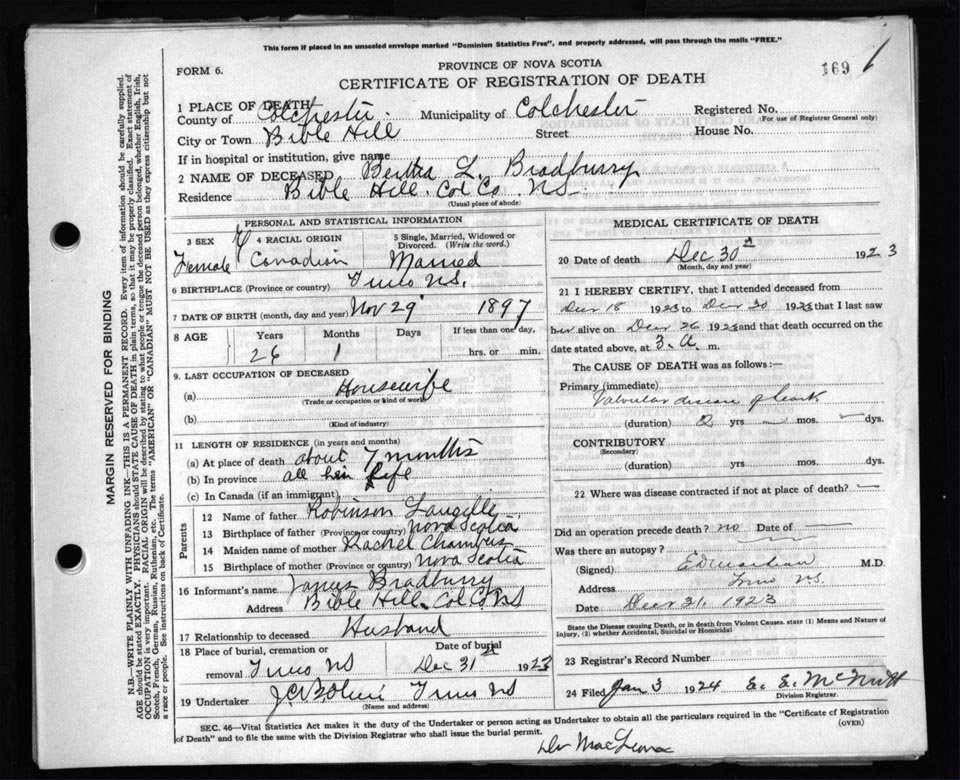 This form if placed in an unsealed envelope marked "Dominion Statistics Free", and properly addressed, will pass through the mails "FREE."
FORM 6.
PROVINCE OF NOVA SCOTIA
169
CERTIFICATE OF REGISTRATION OF DEATH
1 PLACE OF DEATH
County of Colchester. Municipality of Colchester Registered No.
(For use of Registrar General only)
City or Town Bible Hill Street House No.
If in hospital or institution, give name
2 NAME OF DECEASED Bertha L. Bradburry
Residence Bible Hill. Col Co. NS.
(Usual place of abode)
PERSONAL AND STATISTICAL INFORMATION
3 SEX 4 RACIAL ORIGIN 5 Single, Married, Widowed or Divorced. (Write the word.)
Female Canadian Married
6 BIRTHPLACE (Province or country) Truro NS.
7 DATE OF BIRTH (month, day and year) Nov 29 1897
8 AGE Years Months Days If less than one day,
26 1 hrs. or min.
9. LAST OCCUPATION OF DECEASED
(a) Housewife
(Trade or occupation or kind of work)
(b)
(Kind of industry)
11 LENGTH OF RESIDENCE (in years and months)
(a) At place of death about 7 months
(b) In province all her life
(c) In Canada (if an immigrant)
Parents
12 Name of father Robinson Langille.
13 Birthplace of father (Province or country) Nova Scotia
14 Maiden name of mother Rachel Chambers
15 Birthplace of mother (Province or country) Nova Scotia
16 Informant's name James Bradburry
Address Bible Hill. Col Co NS
17 Relationship to deceased Husband
18 Place of burial, cremation or removal Date of burial
Truro NS Dec 31 1923
19 Undertaker Truro NS
(Name and address)
MEDICAL CERTIFICATE OF DEATH
20 Date of death Dec 30th 1923
(Month, day and year)
21 I HEREBY CERTIFY, that I attended deceased from
Decr 18 1923 to Decr 30 1923 that I last saw
her alive on Decr 26 1923 and that death occurred on the
date stated above, at 3. a. m.
The CAUSE OF DEATH was as follows:—
Primary (immediate)
Valvular disease of heart
(duration) 2 yrs — mos. — dys.
CONTRIBUTORY
(Secondary)
(duration) yrs. mos. dys.
22 Where was disease contracted if not at place of death? —
Did an operation precede death? no Date of —
Was there an autopsy?
(Signed) M.D.
Address Truro NS.
Date Decr 31, 1923
State the Disease causing Death, or in death from Violent Causes. state (1) Means and Nature of Injury, (2) whether Accidental, Suicidal or Homicidal
23 Registrar's Record Number
24 Filed Jan 3 1924 E. E. McNutt
Division Registrar.
SEC. 46—Vital Statistics Act makes it the duty of the Undertaker or person acting as Undertaker to obtain all the particulars required in the "Certificate of Registration of Death" and to file the same with the Division Registrar who shall issue the burial permit.
(OVER)
Dr
MARGIN RESERVED FOR BINDING
N.B.—WRITE PLAINLY WITH UNFADING INK—THIS IS A PERMANENT RECORD. Every item of information should be carefully supplied.
AGE should be stated EXACTLY. PHYSICIANS should STATE CAUSE OF DEATH in plain terms, so that it may be properly classified. Exact statement of
OCCUPATION is very important. RACIAL ORIGIN will be described by stating to what people or tongue the deceased person belonged, whether English, Irish,
Scotch, French, German, Russian, Ruthenian, etc. The terms "AMERICAN" or "CANADIAN" MUST NOT BE USED as they express citizenship but not
a race or people. See instructions on back of Certificate.